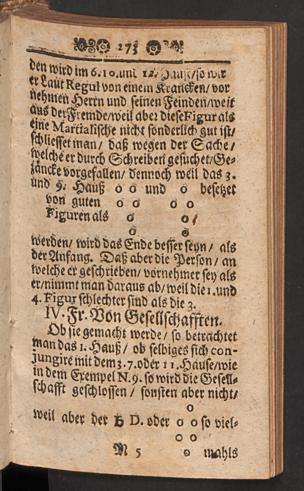 273
den wird im 6. 10. und 12. Hauß/ so wir
er Laut Regul von einem Krancken/ vor
nehmen Herrn und seinen Feinden/weit
aus der Fremde/weil aber diese Figur als
eine Martialische nicht sonderlich gut ist/
schliesset man/ daß wegen der Sache/
welche er durch Schreiben gesuchet/Ge-
zäncke vorgefallen/ dennoch weil das 3.
und 9. Hauß o o und o besetzet
von guten o o o
Figuren als o o
o o
werden/ wird das Ende besser seyn/ als
der Anfang. Daß aber die Person/ an
welche er geschrieben/ vornehmer sey als
er/nimmt man daraus ab/ weil die 1. und
4. Figur schlechter sind als die 3.
IV. Fr. Von Gesellschafften.
Ob sie gemacht werde/ so betrachtet
man das 1. Hauß/ ob selbiges sich con-
jungire mit dem 3. 7. oder 11. Hause/wie
in dem Exempel N. 9. so wird die Gesell-
schafft geschlossen/ sonsten aber nicht/
o
weil aber der ♄ D. oder o o so viel-
o o
M 5 o mahls